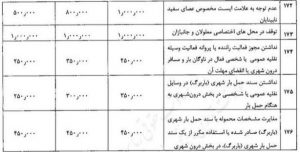 ۱۷۲ عدم توجه به علامت ایست مخصوص عصای سفید نابینایان ۱,۰۰۰,۰۰۰ ۸۰۰,۰۰۰ ۵۰۰,۰۰۰
۱۷۳ توقف در محل های اختصاصی معلولان و جانبازان ۱,۰۰۰,۰۰۰ ۱,۰۰۰,۰۰۰ ۱,۰۰۰,۰۰۰
۱۷۴ نداشتن مجوز فعالیت راننده یا پروانه فعالیت وسیله
نقلیه عمومی یا شخصی فعال در ناوگان بار و مسافر
درون شهری یا انقضای مهلت آن ۴۵۰,۰۰۰ ۳۰۰,۰۰۰ ۲۵۰,۰۰۰
۱۷۵ نداشتن سند حمل بار شهری (باربرگ) در وسایل
نقلیه عمومی یا شخصی در بخش درون‌شهری به
هنگام حمل بار ۴۵۰,۰۰۰ ۳۵۰,۰۰۰ ۲۵۰,۰۰۰
۱۷۶ مغایرت مشخصات محموله با سند حمل بار شهری
(باربرگ) صادر شده یا استفاده مکرر از یک سند
حمل بار شهری (باربرگ) در بخش درون شهری ۴۵۰,۰۰۰ ۳۵۰,۰۰۰